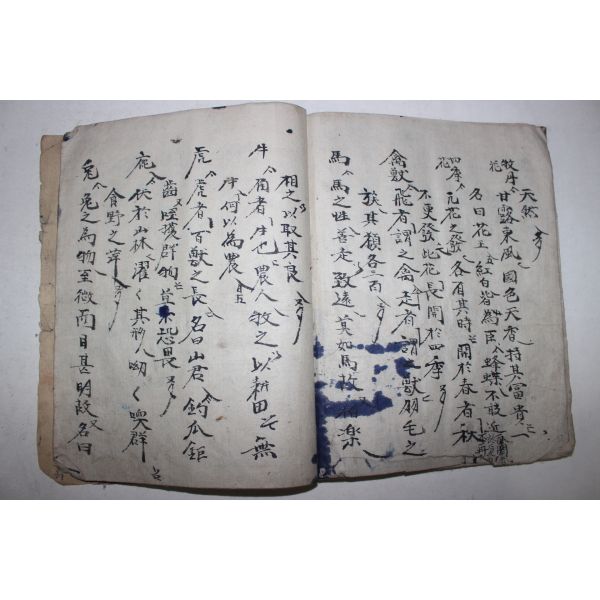 天然
牧丹 甘露東風 國色天香 持其富貴
花 名曰花王 紅白皆爲臣 蜂蝶不敢近
四季 凡花之發 各有其時 開於春者 秋
花 不更發 此花長開於四季
禽獸 飛者謂之禽 走者謂之獸 羽毛之
族 其類各三百
馬 馬之性善走 致遠莫如馬 牧 樂
相之 以取其良
牛 者牛也 農人牧之 以耕田 無
牛 何以為農
虎 虎者百獸之長 名曰山君 鉤爪鉅
齒 群物莫不恐畏
鹿 伏於山林 濯々其形 呦々哭群
食野之苹
兎 兎之為物至微 而目甚明 故名曰